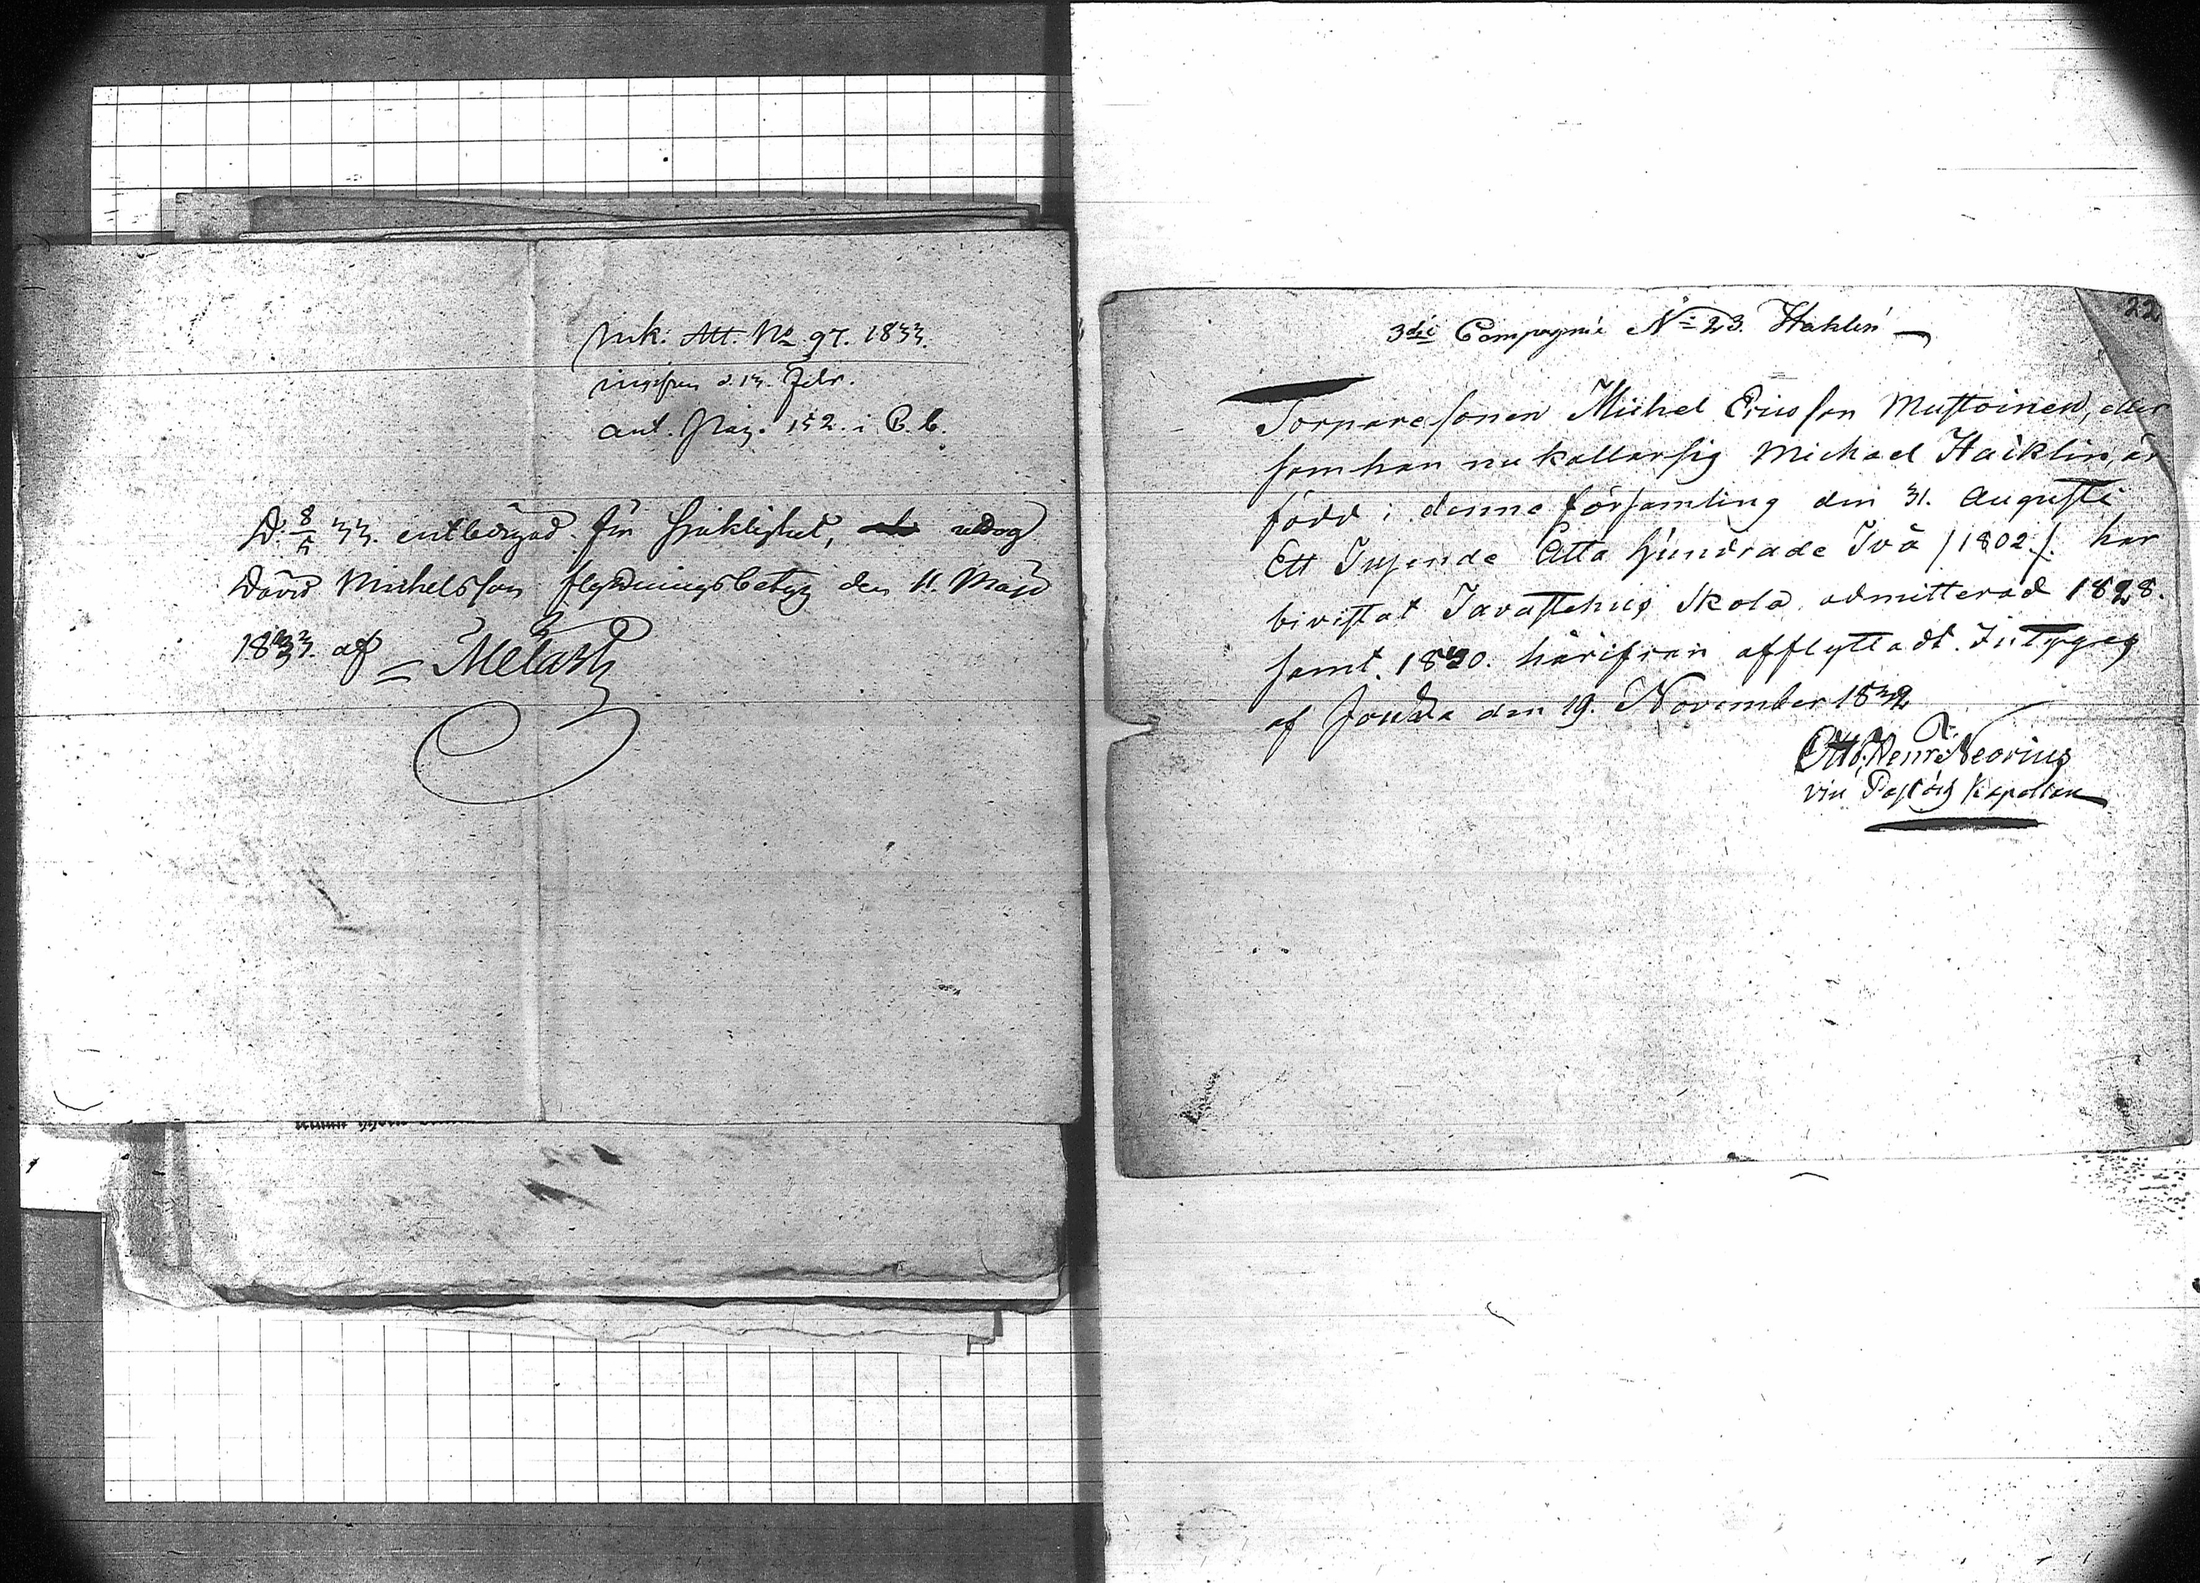 Ink: Att. No 97. 1833.
d. 13. Febr.
ant. Pag. 152. i C. b.
D. 8/5 33. entledigad för sjuklighet, uttog
David Michelsson flyttningsbetyg den 11. Maji
1833. af
22
3die Compagnie No 23. Haklin
Torparesonen Michel Ericsson Mustoinen, eller
som han nu kallar sig Michael Haiklin, är
född i denne församling den 31. Augusti
Ett Tusende Åtta Hundrade Två /1802/. har
bivistat Tavastehus Skola, admitterad 1828.
samt. 1830. härifrån afflyttadt. Intygas
af Jockis den 19. November 1832
Otto Henr: Neorius
vice Pastor Kapellan